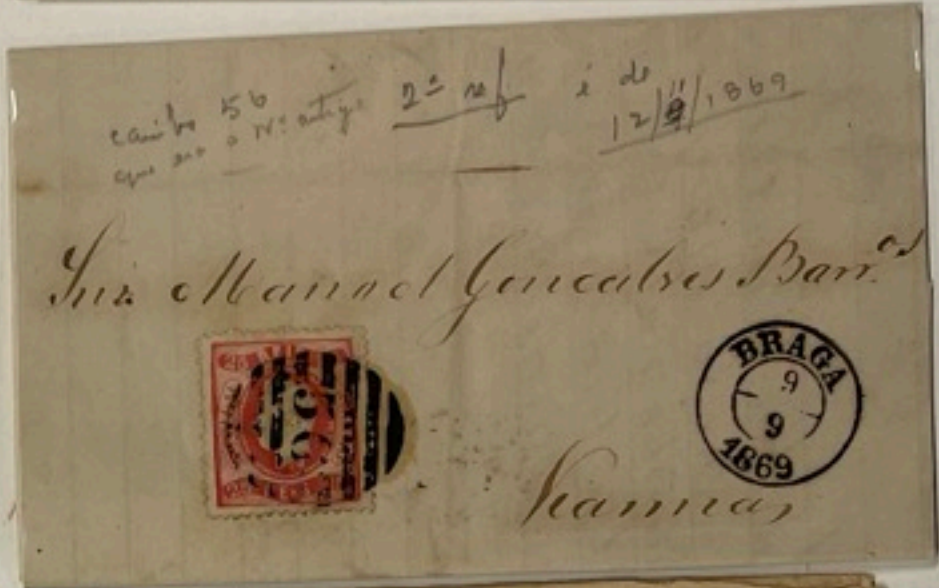 carimbo 56
que era o Nº antigo
2ª ref
é de
12/11/1869
Snr. Manoel Goncalves Barr.os
BRAGA
9
9
1869
56
Vianna,